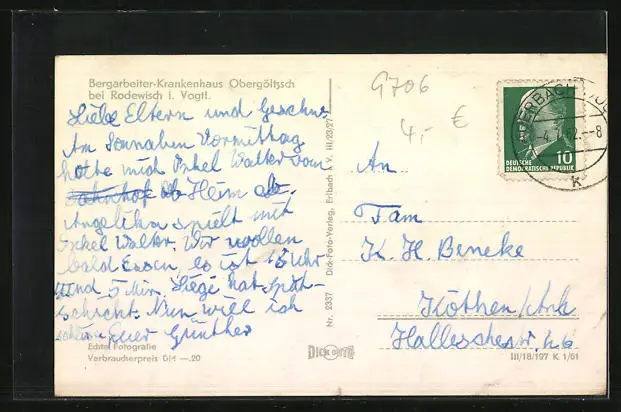 Bergarbeiter-Krankenhaus Obergöltzsch
bei Rodewisch i. Vogtl.
Liebe Eltern und Geschw.
Am Sonnaben Vormittag
holte mich Onkel Walter vom
Bahnhof ab Heim ab.
Angelika spielt mit
Onkel Walter. Wir wollen
bald Essen, es ist 18 Uhr
und 5 Min. Siegi hat Spät-
schicht. Nun will ich
Euer Günther
Echte Fotografie
Verbraucherpreis DM —.20
Nr. 2337 Dick-Foto-Verlag, Erlbach i. V. III/23/27
G706
4,- €
DEUTSCHE
DEMOKRATISCHE REPUBLIK
10
62.-8
K
An
Fam
K. H. Beneke
Köthen/Anh
Hallesche
DICK FOTO
III/18/197 K 1/61